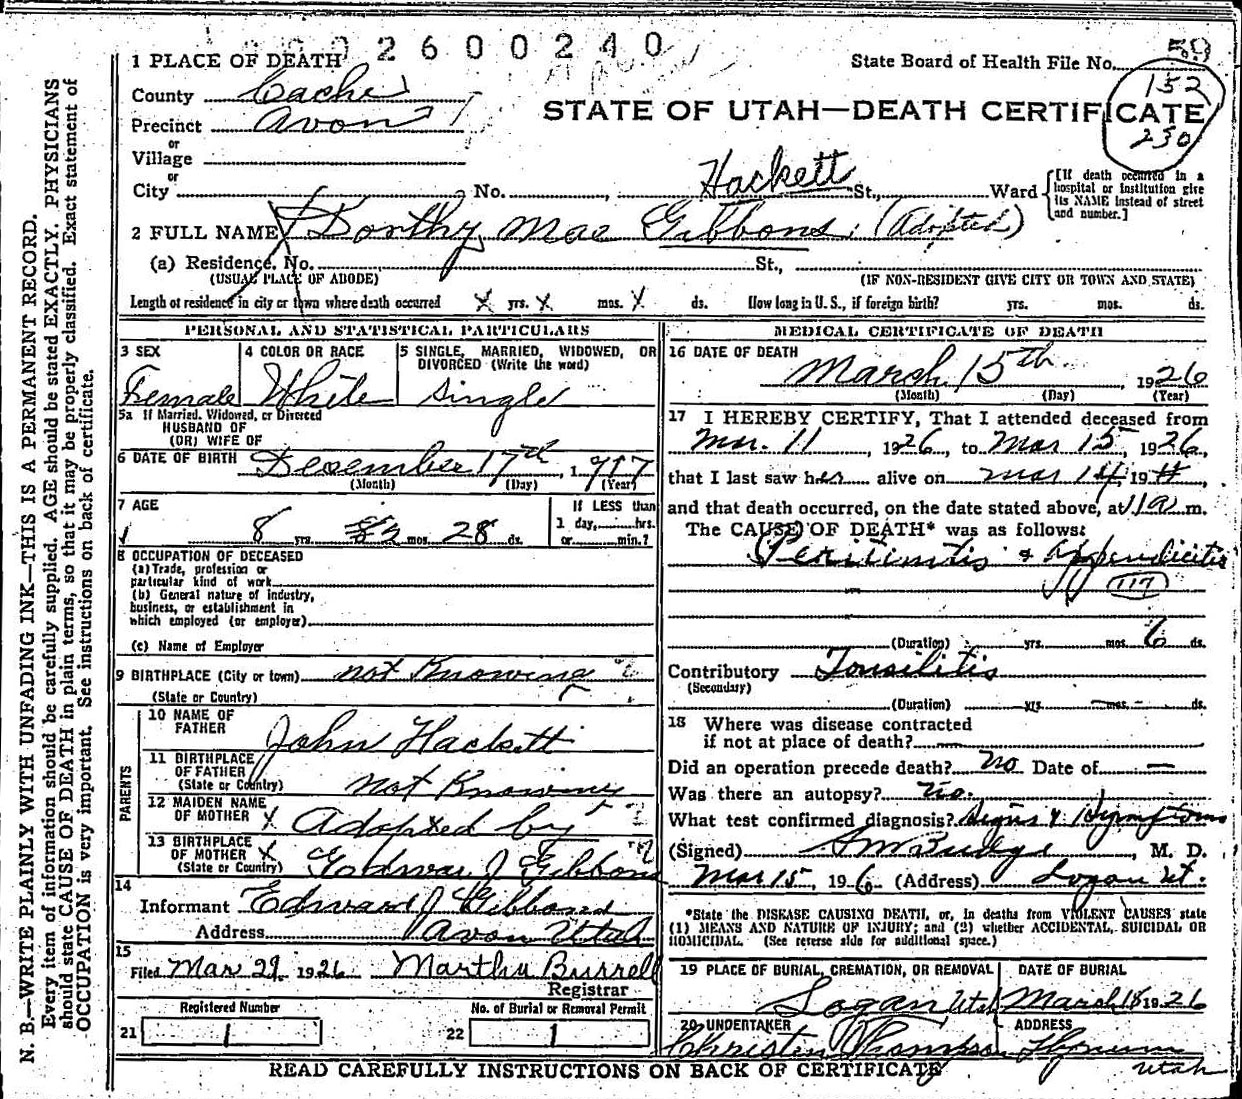 2 6 0 0 2 4 0
59
1 PLACE OF DEATH
State Board of Health File No.
152
230
County Cache
STATE OF UTAH—DEATH CERTIFICATE
Precinct Avon
or
Village
or
City No. Hackett St., Ward
[If death occurred in a hospital or institution give its NAME instead of street and number.]
2 FULL NAME Dorthy Mae Gibbons. (Adopted)
(a) Residence. No. St.,
(USUAL PLACE OF ABODE) (IF NON-RESIDENT GIVE CITY OR TOWN AND STATE)
Length of residence in city or town where death occurred X yrs. X mos. X ds. How long in U. S., if foreign birth? yrs. mos. ds.
PERSONAL AND STATISTICAL PARTICULARS
3 SEX
Female
4 COLOR OR RACE
White
5 SINGLE, MARRIED, WIDOWED, OR
DIVORCED (Write the word)
Single
5a If Married, Widowed, or Divorced
HUSBAND OF
(OR) WIFE OF
6 DATE OF BIRTH December 17th, 1917
(Month) (Day) (Year)
7 AGE
8 yrs. mos. 28 ds.
If LESS than
1 day, hrs.
or min.?
8 OCCUPATION OF DECEASED
(a) Trade, profession or
particular kind of work
(b) General nature of industry,
business, or establishment in
which employed (or employer)
(c) Name of Employer
9 BIRTHPLACE (City or town) not Knowing
(State or Country)
PARENTS
10 NAME OF
FATHER
John Hackett
11 BIRTHPLACE
OF FATHER
(State or Country) not Knowing
12 MAIDEN NAME
OF MOTHER X Adopted by
13 BIRTHPLACE
OF MOTHER X
(State or Country) J Gibbons
14
Informant Edward J Gibbons
Address Avon Utah
15
Filed Mar 29 1926 Martha Burrell
Registrar
Registered Number
21 1
No. of Burial or Removal Permit
22 1
MEDICAL CERTIFICATE OF DEATH
16 DATE OF DEATH
March 15th, 1926
(Month) (Day) (Year)
17 I HEREBY CERTIFY, That I attended deceased from
Mar. 11, 1926, to Mar 15, 1926,
that I last saw her alive on Mar 14, 19 ,
and that death occurred, on the date stated above, at 11 a m.
The CAUSE OF DEATH* was as follows:
Peritonitis & Appendicitis
117
(Duration) yrs. mos. 6 ds.
Contributory Tonsilitis
(Secondary)
(Duration) yrs. mos. ds.
18 Where was disease contracted
if not at place of death?
Did an operation precede death? No Date of —
Was there an autopsy? No.
What test confirmed diagnosis? Signs & Symptoms
(Signed) S M Budge, M. D.
Mar 15, 1926 (Address) Logan Ut.
*State the DISEASE CAUSING DEATH, or, in deaths from VIOLENT CAUSES state
(1) MEANS AND NATURE OF INJURY; and (2) whether ACCIDENTAL, SUICIDAL OR
HOMICIDAL. (See reverse side for additional space.)
19 PLACE OF BURIAL, CREMATION, OR REMOVAL
Logan Utah
DATE OF BURIAL
March 18 1926
20 UNDERTAKER
Christen Thompson
ADDRESS
Hyrum
Utah
READ CAREFULLY INSTRUCTIONS ON BACK OF CERTIFICATE
N. B.—WRITE PLAINLY WITH UNFADING INK—THIS IS A PERMANENT RECORD.
Every item of information should be carefully supplied. AGE should be stated EXACTLY. PHYSICIANS
should state CAUSE OF DEATH in plain terms, so that it may be properly classified. Exact statement of
OCCUPATION is very important. See instructions on back of certificate.